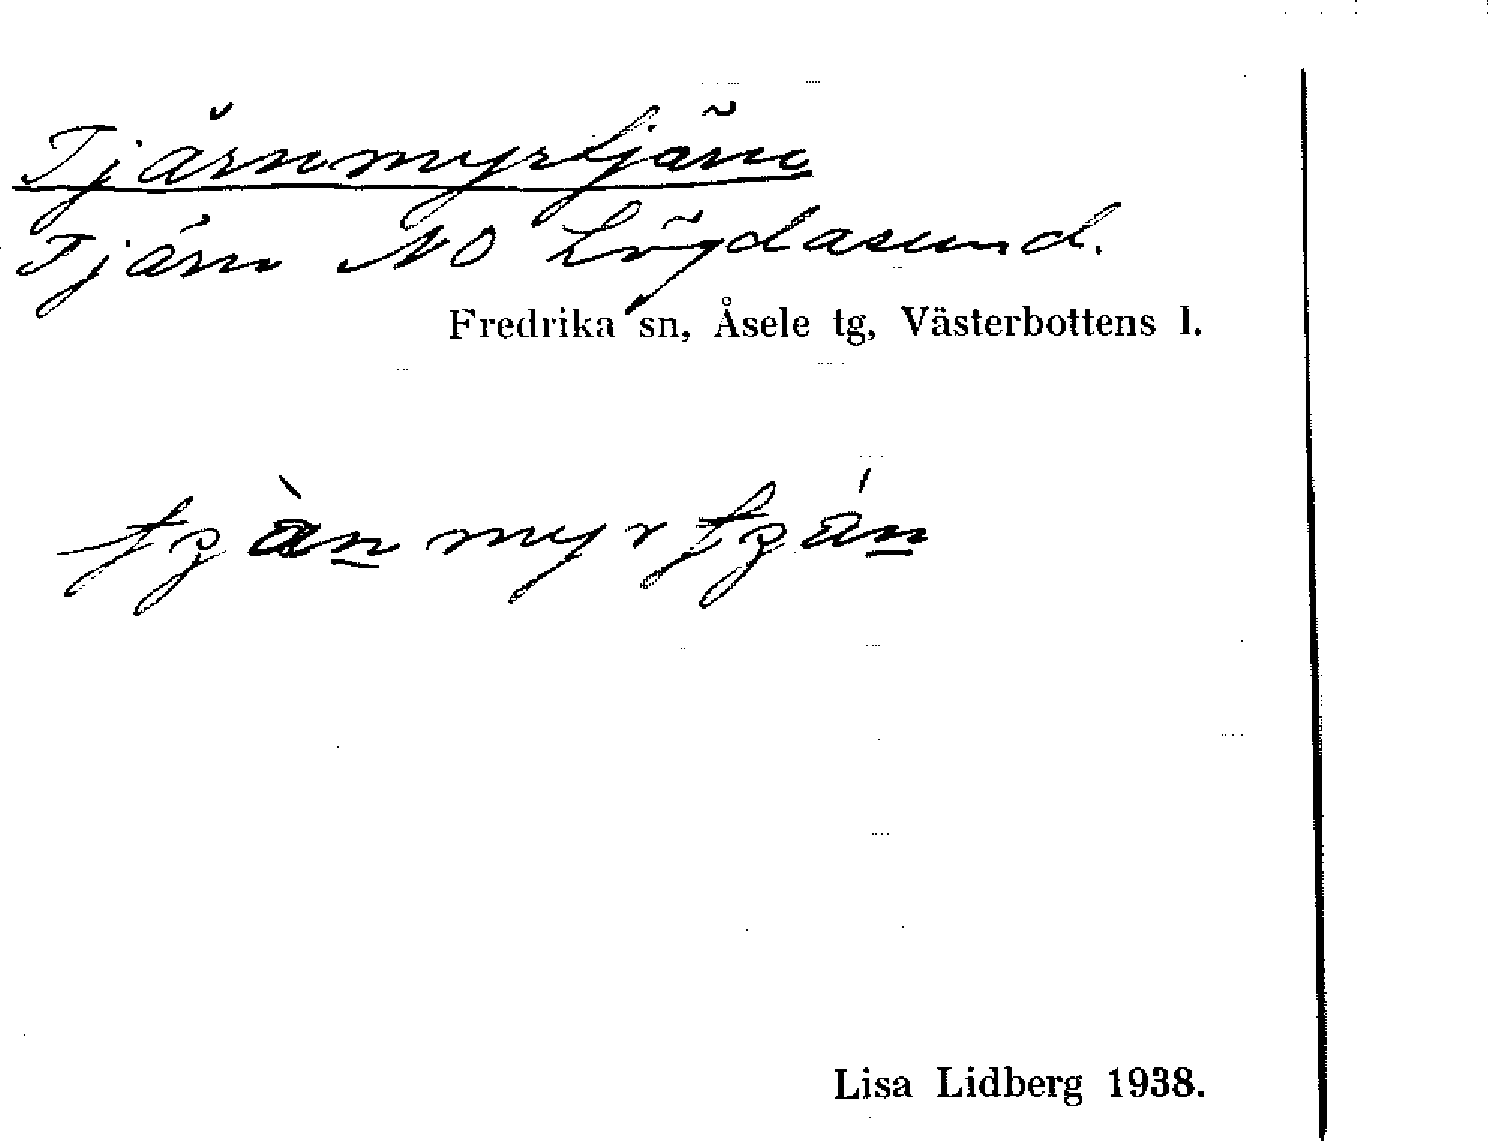 Tjärnmyrtjärn
Tjärn NO Lögdasund.
Fredrika sn, Åsele tg, Västerbottens l.
Lisa Lidberg 1938.